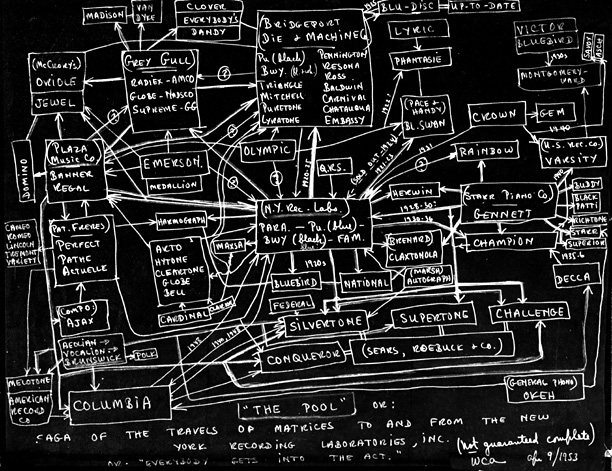 MADISON
VAN DYKE
CLOVER
EVERYBODY'S
DANDY
BRIDGEPORT
DIE & MACHINE Co.
PU (black)
BWY.
TRIANGLE
MITCHELL
PURETONE
LYRATONE
PENNINGTON
RESONA
ROSS
BALDWIN
CARNIVAL
CHATAUQUA
EMBASSY
BLU-DISC
UP-TO-DATE
LYRIC
PHANTASIE
(PACE & HANDY)
BL. SWAN
VICTOR
BLUEBIRD
1930s
MONTGOMERY-WARD
(McCRORY'S)
ORIOLE
JEWEL
GREY GULL
RADIEX-AMCO
GLOBE-NADSCO
SUPREME-GG
CROWN
GEM
1940
(U.S. REC. CO.)
VARSITY
RAINBOW
PLAZA
MUSIC Co.
BANNER
REGAL
DOMINO
EMERSON
MEDALLION
OLYMPIC
Q.R.S.
HERWIN
STARR PIANO Co.
GENNETT
CHAMPION
1935-6
BUDDY
BLACK PATTI
RICHTONE
STARR
SUPERIOR
DECCA
CAMEO
ROMEO
LINCOLN
TREMONT
VARIETY
PAT. FRERES
PERFECT
PATHE
ACTUELLE
HARMOGRAPH
(N.Y. REC. LABS.
PARA. - PU. (blue)-
BWY (black) - FAM.
MAXSA
ARTO
HYTONE
CLEARTONE
GLOBE
BELL
CARDINAL
(BRENARD)
CLAXTONOLA
(MARSH)
AUTOGRAPH
1930s
BLUEBIRD
NATIONAL
FEDERAL
(COMPO:)
AJAX
SILVERTONE
SUPERTONE
CHALLENGE
CONQUEROR
(SEARS, ROEBUCK & CO.)
AEOLIAN
VOCALION
BRUNSWICK
POLK
MELOTONE
AMERICAN
RECORD
CO
COLUMBIA
(GENERAL PHONO)
OKEH
"THE POOL" OR:
SAGA OF THE TRAVELS OF MATRICES TO AND FROM THE NEW
YORK RECORDING LABORATORIES, INC.
OR: "EVERYBODY GETS INTO THE ACT."
(Not guaranteed complete)
WCA
9/1953